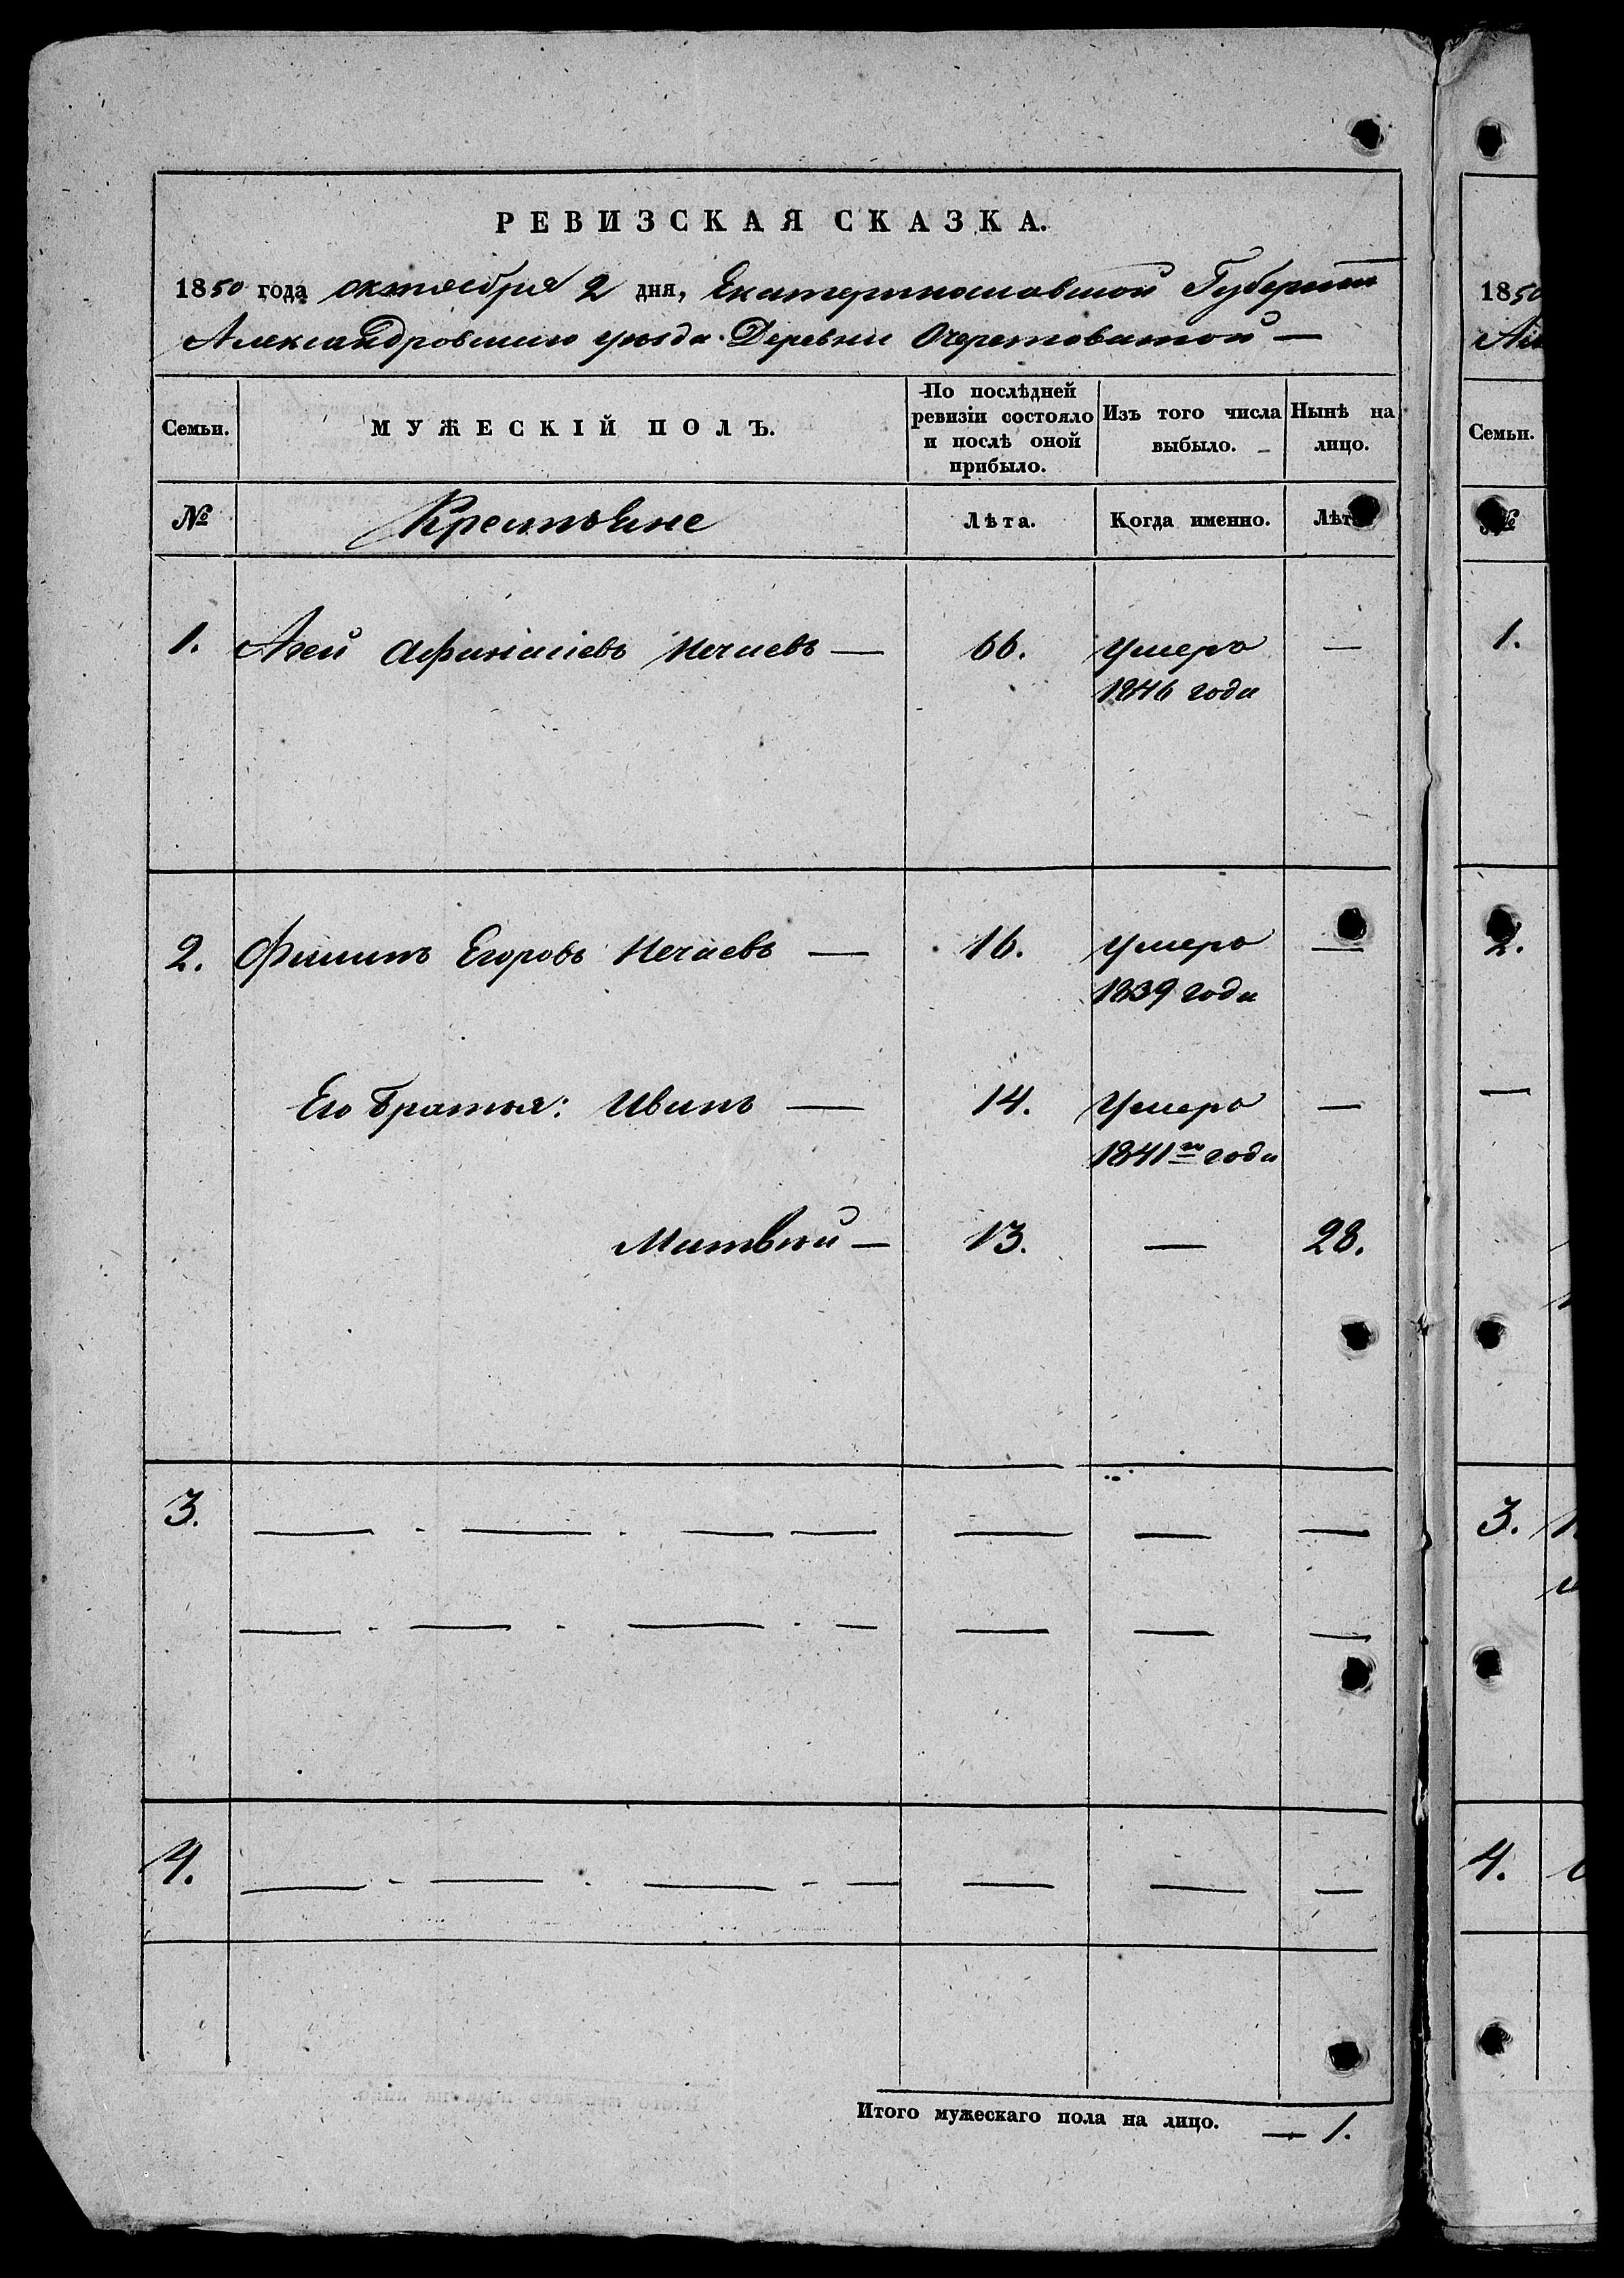 РЕВИЗСКАЯ СКАЗКА.
1850 года октября 2 дня, Екатеринославской Губернии
Александровскаго уезда Деревни Очеретоватой —
Семьи.
МУЖЕСКІЙ ПОЛЪ.
По послѣдней
ревизіи состояло
и послѣ оной
прибыло.
Изъ того числа
выбыло.
Нынѣ на
лицо.
№
Крестьяне
Лѣта.
Когда именно.
Лѣта
1. Агей Афанасіевъ Нечаевъ — 66. Умеръ —
1846 года
2. Филипъ Егоровъ Нечаевъ — 16. Умеръ —
1839 года
Его братья: Иванъ — 14. Умеръ —
1841го года
Матвѣй — 13. — 28.
3.
4.
Итого мужескаго пола на лицо. — 1.
1850
Семьи.
№
1.
2.
3.
4.